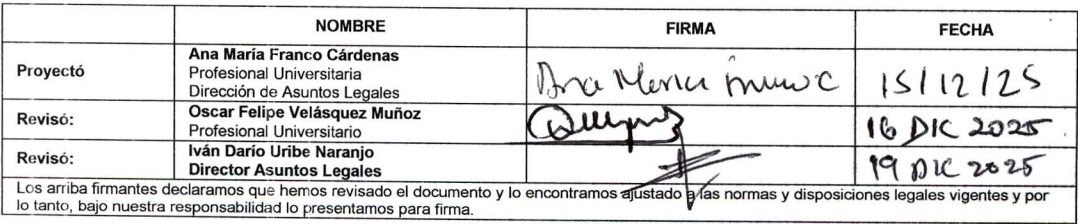 NOMBRE FIRMA FECHA
Proyectó
Ana María Franco Cárdenas
Profesional Universitaria
Dirección de Asuntos Legales
Ana Maria
15/12/25
Revisó:
Oscar Felipe Velásquez Muñoz
Profesional Universitario
16 DIC 2025
Revisó:
Iván Darío Uribe Naranjo
Director Asuntos Legales
19 DIC 2025
Los arriba firmantes declaramos que hemos revisado el documento y lo encontramos ajustado a las normas y disposiciones legales vigentes y por
lo tanto, bajo nuestra responsabilidad lo presentamos para firma.